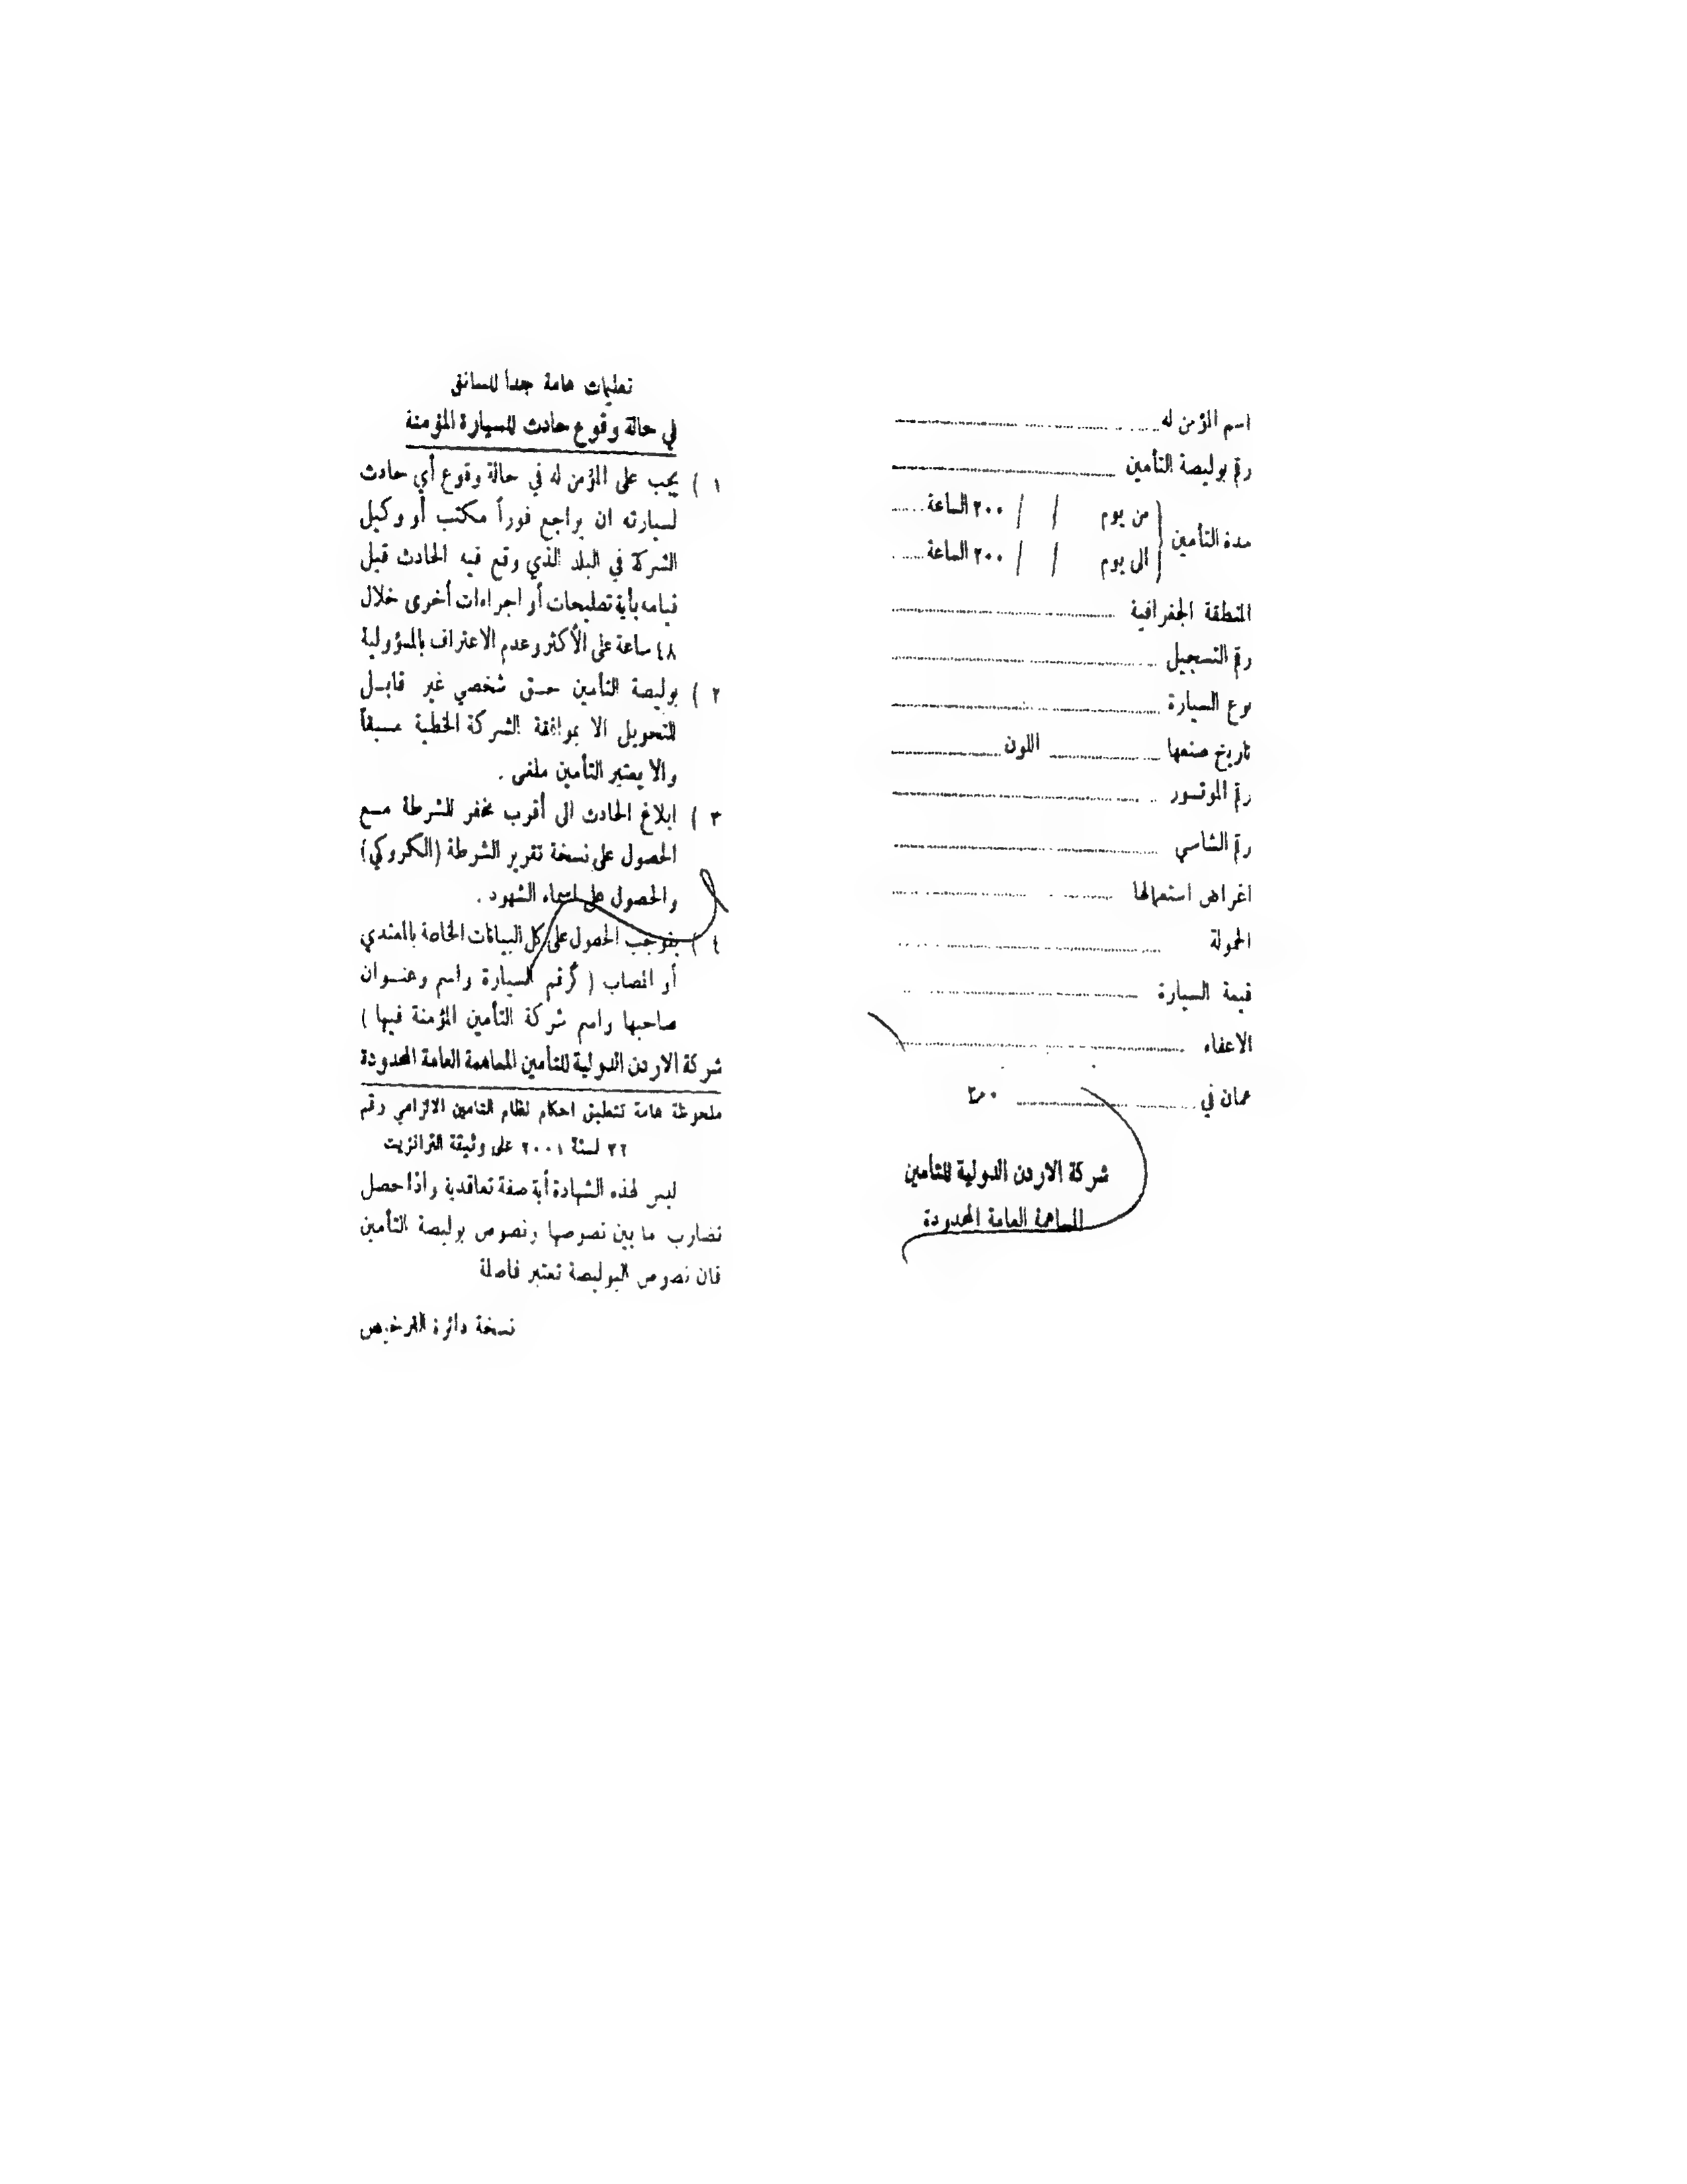 اسم المؤمن له
رقم بوليصة التأمين
مدة التأمين
من يوم / / ٢٠٠ الساعة
الى يوم / / ٢٠٠ الساعة
المنطقة الجغرافية
رقم التسجيل
نوع السيارة
تاريخ صنعها اللون
رقم الموتور
رقم الشاسي
اغراض استعمالها
الحمولة
قيمة السيارة
الاعفاء
عمان في ٢٠٠
شركة الاردن الدولية للتأمين
المساهمة العامة المحدودة
تعليمات هامة جداً للسائق
في حالة وقوع حادث للسيارة المؤمنة
١ ) يجب على المؤمن له في حالة وقوع أي حادث
لسيارته ان يراجع فوراً مكتب أو وكيل
الشركة في البلد الذي وقع فيه الحادث قبل
قيامه بأية تصليحات أو اجراءات أخرى خلال
٤٨ ساعة على الأكثر وعدم الاعتراف بالمسؤولية
٢ ) بوليصة التأمين حق شخصي غير قابل
للتحويل الا بموافقة الشركة الخطية مسبقاً
والا يعتبر التأمين ملغى .
٣ ) ابلاغ الحادث الى أقرب مخفر للشرطة مع
الحصول على نسخة تقرير الشرطة (الكروكي)
والحصول على اسماء الشهود .
٤ ) يتوجب الحصول على كل البيانات الخاصة بالمعتدي
أو المصاب ( كرقم السيارة واسم وعنوان
صاحبها واسم شركة التأمين المؤمنة فيها )
شركة الاردن الدولية للتأمين المساهمة العامة المحدودة
ملحوظة هامة تنطبق احكام نظام التامين الالزامي رقم
٣٢ لسنة ٢٠٠١ على وثيقة الترانزيت
ليس لهذه الشهادة أية صفة تعاقدية واذا حصل
تضارب ما بين نصوصها ونصوص بوليصة التأمين
فان نصوص البوليصة تعتبر فاصلة
نسخة دائرة الترخيص